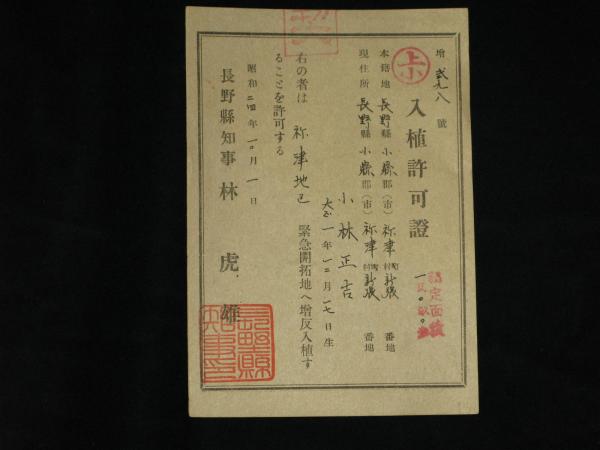 増 弐九八 號
上小
入植許可證
本籍地 長野縣小縣郡(市)祢津村新張 番地
現住所 長野縣小縣郡(市)祢津村新張 番地
小林正吉
大正一年一二月一七日生
右の者は 祢津地区 緊急開拓地へ増反入植す
ることを許可する
昭和二四年一〇月一日
長野縣知事 林 虎雄
長野縣知事印
認定面積